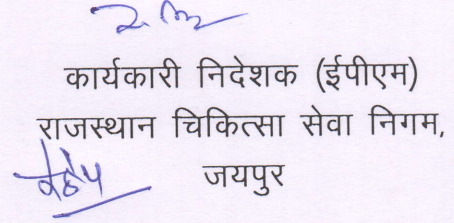 कार्यकारी निदेशक (ईपीएम)
राजस्थान चिकित्सा सेवा निगम,
जयपुर